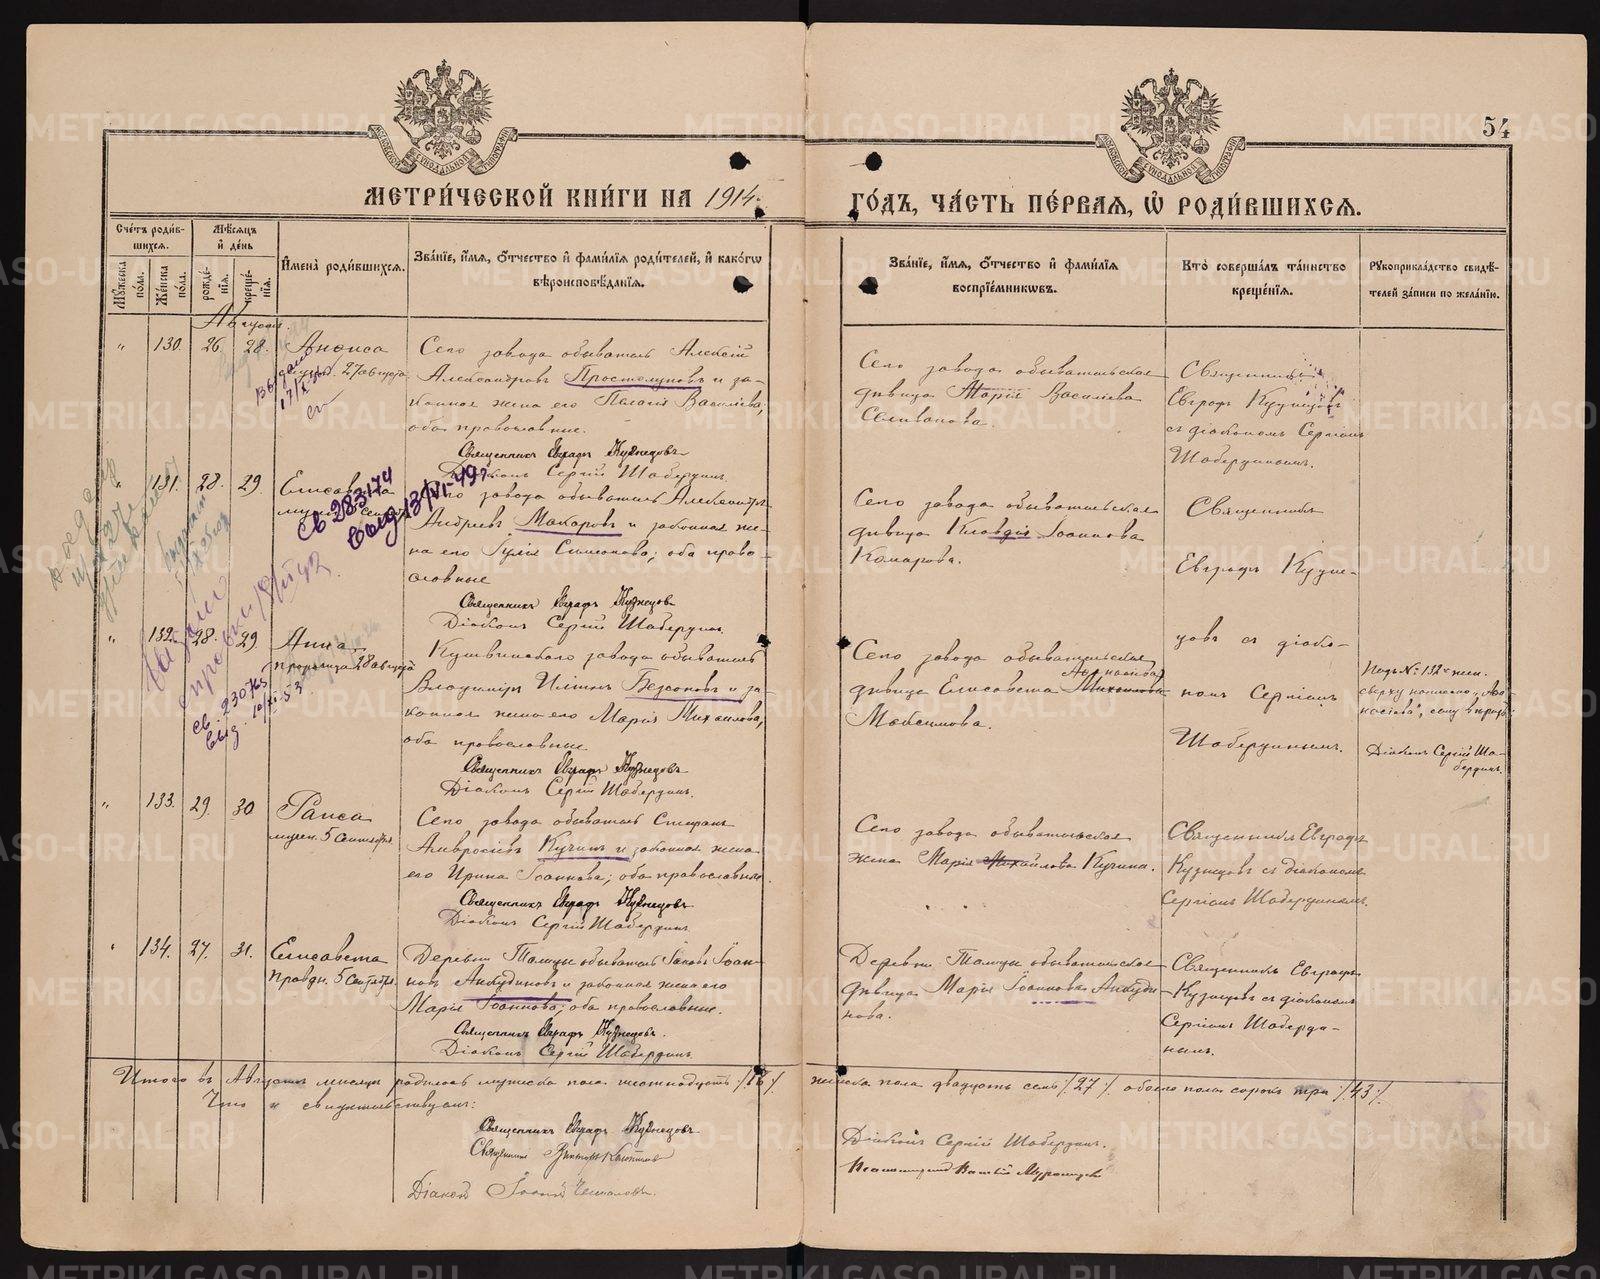 54
МЕТРИ́ЧЕСКОЙ КНИ́ГИ НА 1914
ГО́ДЪ, ЧА́СТЬ ПЕ́РВАЯ, Ѽ РОДИ́ВШИХСЯ.
Сче́тъ роди́вшихся.
Мѣ́сяцъ и де́нь
Мꙋ́жеска по́ла.
Же́нска по́ла.
рожде́нїя.
креще́нїя.
Имена̀ роди́вшихся.
Зва́нїе, и́мя, ѻ́тчество и фами́лїя роди́телей, и како́гѡ
вѣроисповѣ́данїя.
Зва́нїе, и́мя, ѻ́тчество и фами́лїя
воспрїе́мникѡвъ.
Кто̀ соверша́лъ та́инство
креще́нїя.
Рꙋкоприкла́дство свидѣ́телей за́писи по жела́нїю.
Августъ.
" 130. 26. 28. Анѳиса
27 августа
Сего завода обыватель Алексій
Александровъ Простолуповъ и за-
конная жена его Пелагія Васильева,
оба православные.
Священникъ Евграфъ Кузнецовъ
Діаконъ Сергій Шабердинъ
Сего завода обывательская
дѣвица Марія Васильева
Селиванова.
Священникъ
Евграфъ Кузнецовъ
съ діакономъ Сергіемъ
Шабердинымъ.
131. 28. 29. Елисавета
Св 283174
Выд. 13/VI-49г
Сего завода обыватель Александръ
Андреевъ Макаровъ и законная же-
на его Іулія Симеонова; оба право
славные
Священникъ Евграфъ Кузнецовъ
Діаконъ Сергій Шабердинъ.
Сего завода обывательская
дѣвица Клавдія Іоаннова
Комарова.
Священникъ
Евграфъ Кузне-
цовъ съ діако-
номъ Сергіемъ
Шабердинымъ.
" 132. 28. 29. Анна
пророчица 28 августа
св. 230765
выд.
Кушвинскаго завода обыватель
Владиміръ Илiинъ Безсоновъ и за-
конная жена его Марія Михаилова,
оба православные.
Священникъ Евграфъ Кузнецовъ
Діаконъ Сергій Шабердинъ.
Сего завода обывательская
дѣвица Елисавета Михаилова
Максимова.
Подъ № 132 жен.
сверху написано
Діаконъ Сергій Ша-
бердинъ.
" 133. 29. 30 Раиса
мучен. 5 Сентября
Сего завода обыватель Стефанъ
Амвросіевъ Кучинъ и законная жена
его Ирина Іоаннова; оба православные.
Священникъ Евграфъ Кузнецовъ
Діаконъ Сергій Шабердинъ
Сего завода обывательская
жена Марія Михайлова Кучина.
Священникъ Евграфъ
Кузнецовъ съ діакономъ
Сергіемъ Шабердинымъ.
" 134. 27. 31. Елисавета
правдн. 5 Сентября
Деревни Талицы обыватель Іаковъ Іоан-
новъ Анкудиновъ и законная жена его
Марія Іоаннова; оба православные.
Священникъ Евграфъ Кузнецовъ.
Діаконъ Сергій Шабердинъ.
Деревни Талицы обывательская
дѣвица Марія Іоаннова Анкуди
нова.
Священникъ Евграфъ
Кузнецовъ съ діакономъ
Сергіемъ Шаберди-
нымъ.
Итого въ Августѣ мѣсяцѣ родилось мужеска пола шестнадцать /16/ женска пола двадцать семь /27/ обоего пола сорокъ три /43/.
Что и свидѣтельствуемъ:
Священникъ Евграфъ Кузнецовъ
Священникъ
Діаконъ Іоаннъ
Діаконъ Сергій Шабердинъ.
Псаломщикъ
METRIKI.GASO-URAL.RU